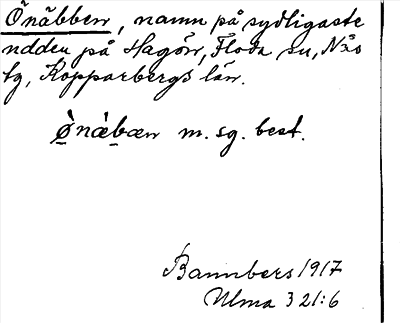 Önäbben, namn på sydligaste
udden på Hagön, Floda sn, Nås
tg, Kopparbergs län.
ø̀næ̀bæn m. sg. best.
Bannbers 1917
Ulma 321:6